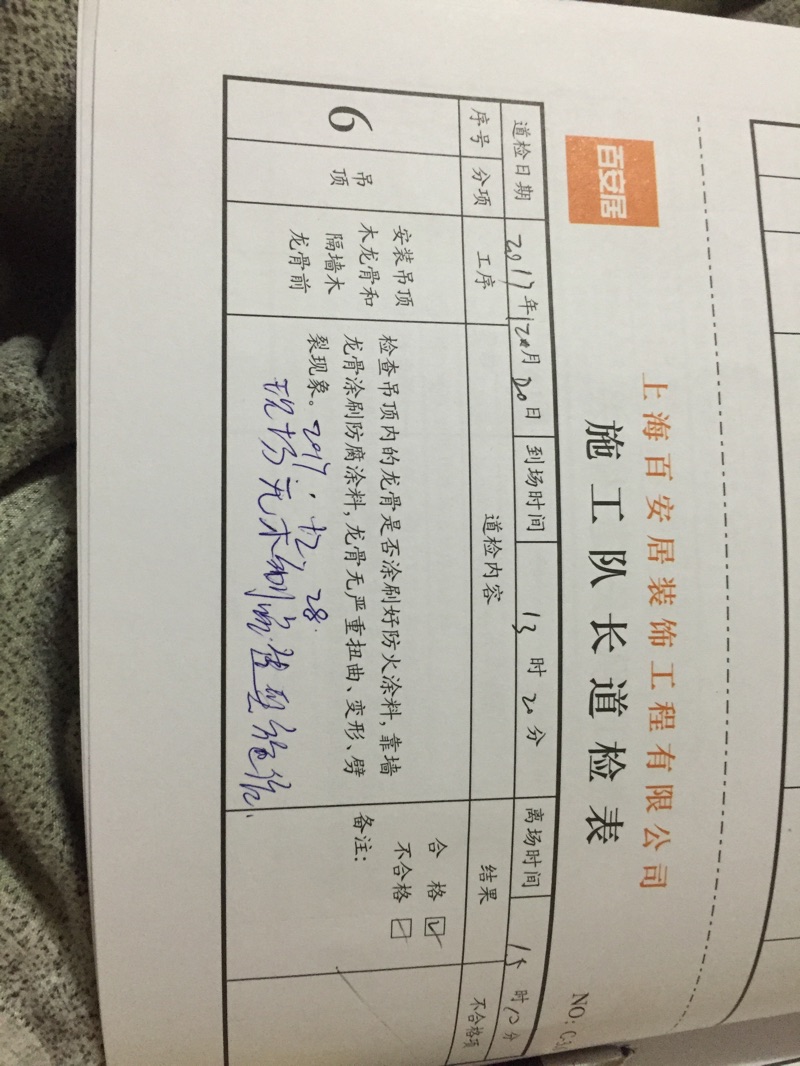 百安居
上海百安居装饰工程有限公司
施工队长道检表
NO: C-
道检日期 2017年12月20日 到场时间 13时20分 离场时间 15时10分
序号 分项 工序 道检内容 结果 不合格项
6
吊顶
安装吊顶
木龙骨和
隔墙木
龙骨前
检查吊顶内的龙骨是否涂刷好防火涂料,靠墙
龙骨涂刷防腐涂料,龙骨无严重扭曲、变形、劈
裂现象。
2017.12.28.
现场无木制
合格 ☑
不合格 ☐
备注: